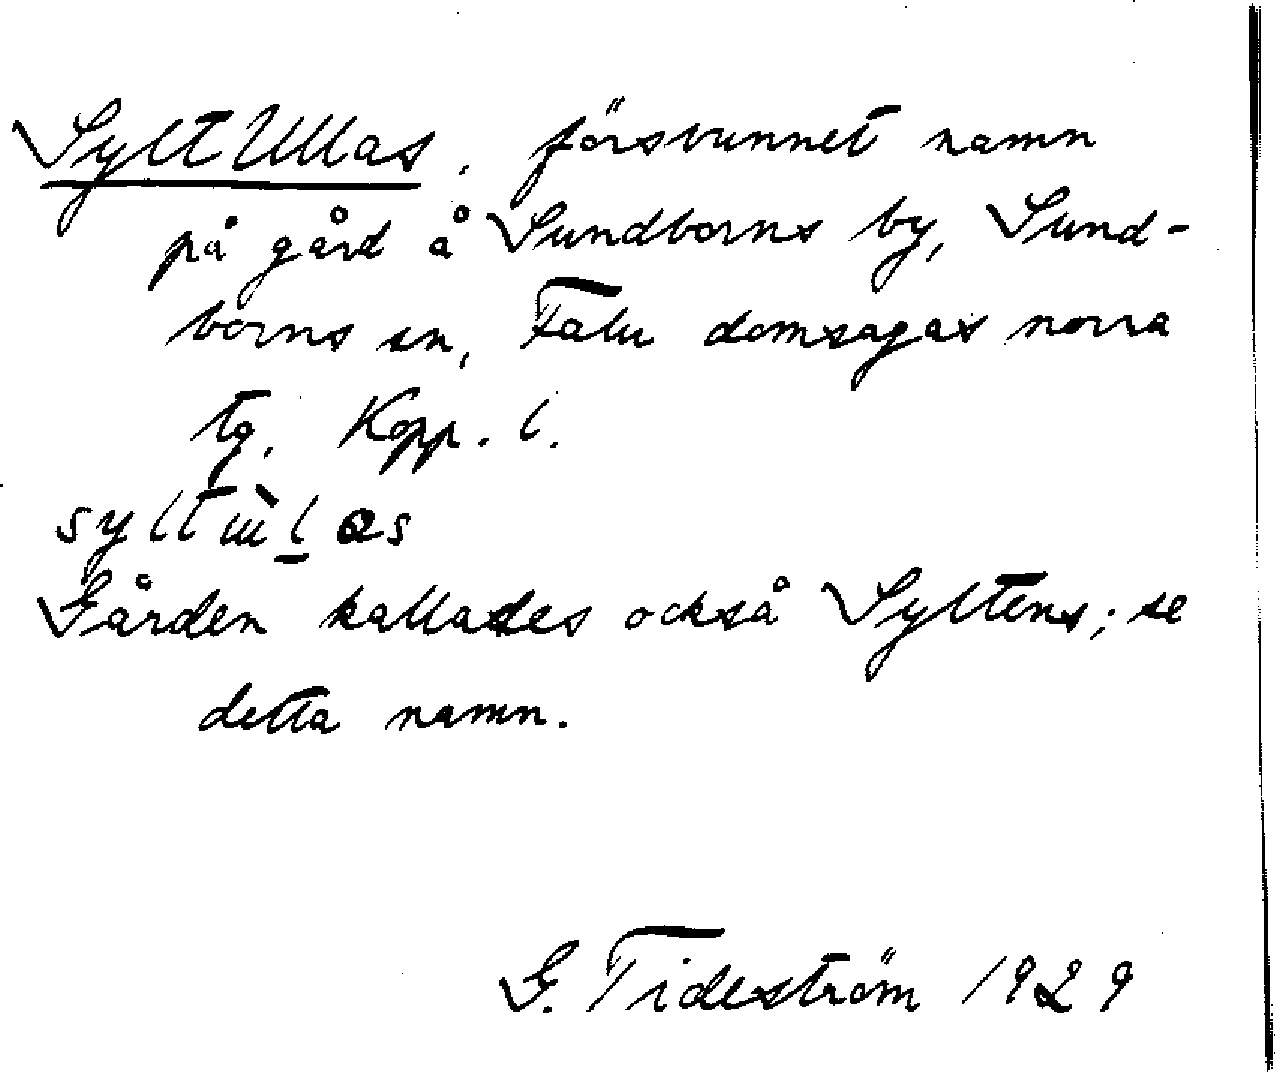 Sylt Ullas, försvunnet namn
på gård å Sundborns by, Sund-
borns sn, Falu domsagas norra
tg. Kopp. l.
Gården kallades också Syltens; se
detta namn.
G. Tideström 1929